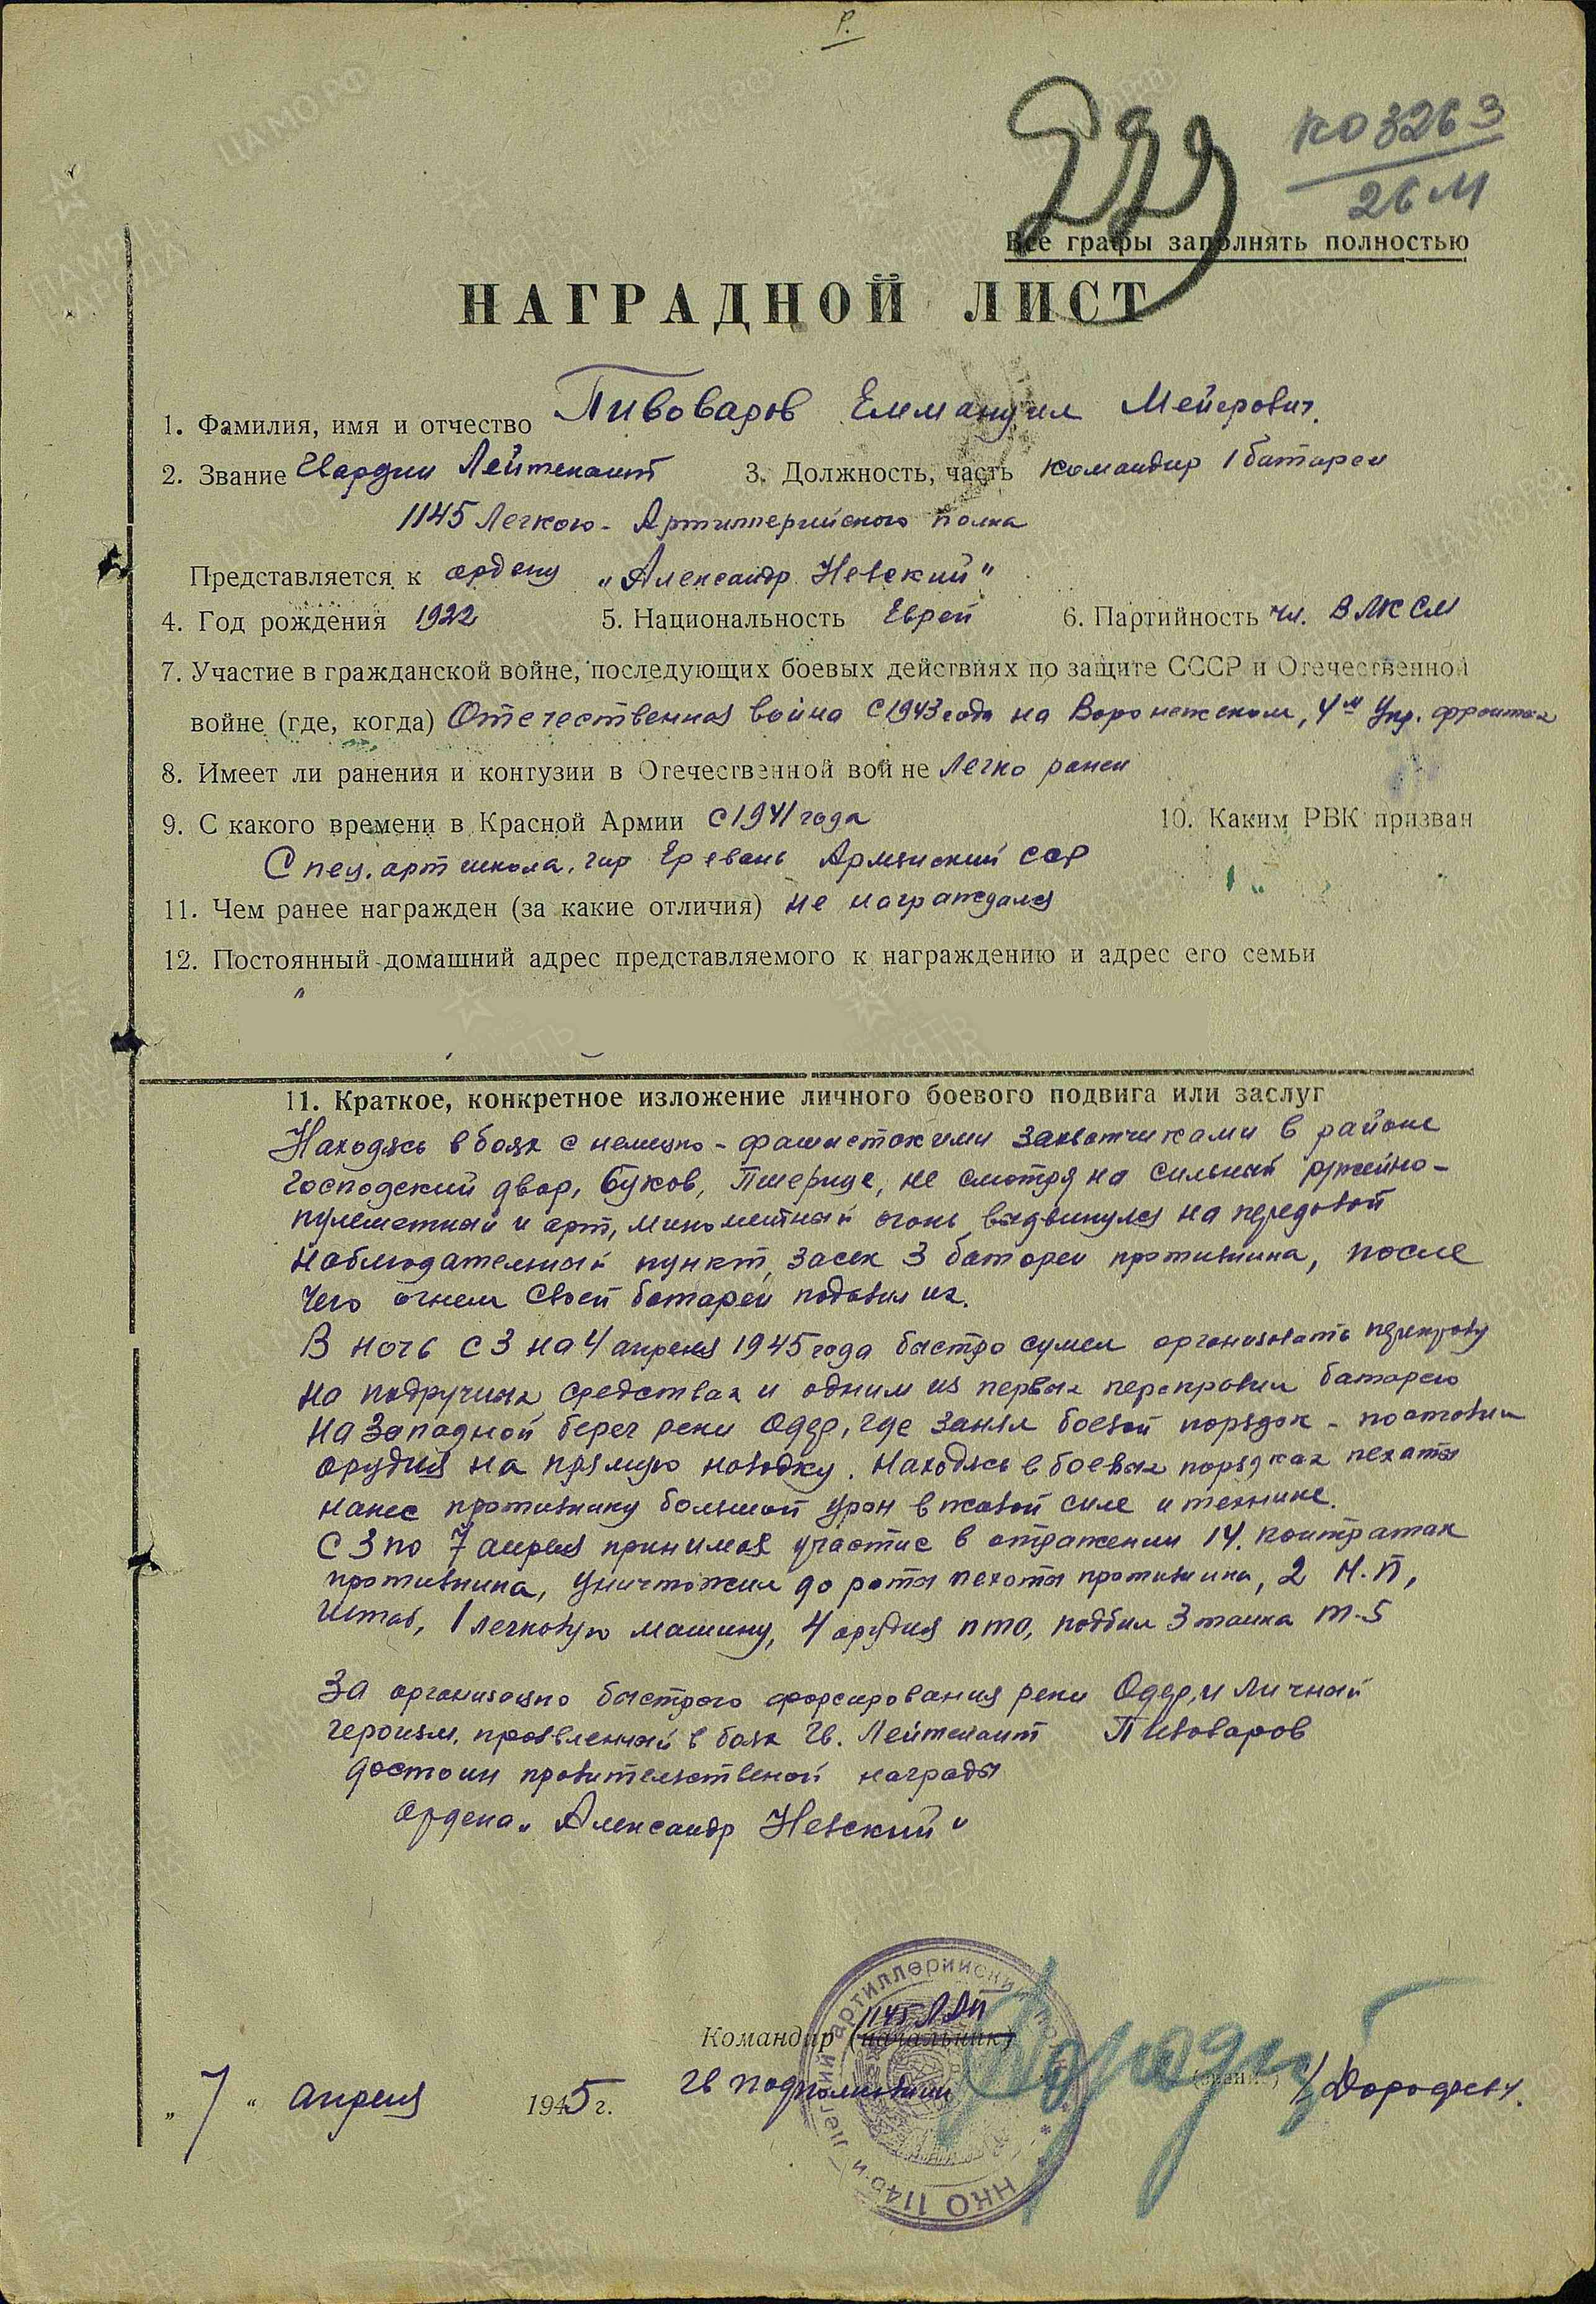 Р.
229
КО 3263
26 М
Все графы заполнять полностью
НАГРАДНОЙ ЛИСТ
1. Фамилия, имя и отчество Пивоваров Еммануил Мейерович.
2. Звание Гвардии Лейтенант 3. Должность, часть командир 1 батареи
1145 Легкого-Артиллерийского полка
Представляется к ордену „Александр Невский"
4. Год рождения 1922 5. Национальность Еврей 6. Партийность чл. ВЛКСМ
7. Участие в гражданской войне, последующих боевых действиях по защите СССР и Отечественной
войне (где, когда) Отечественная война с 1943 года на Воронежском, 4м Укр. фронтах
8. Имеет ли ранения и контузии в Отечественной войне Легко ранен
9. С какого времени в Красной Армии с 1941 года 10. Каким РВК призван
Спец. арт школа, гор Ереван Армянский ССР
11. Чем ранее награжден (за какие отличия) не награждался
12. Постоянный домашний адрес представляемого к награждению и адрес его семьи
11. Краткое, конкретное изложение личного боевого подвига или заслуг
Находясь в боях с немецко-фашистскими захватчиками в районе
Господский двор, Буков, Пшерице, не смотря на сильный ружейно-
пулеметный и арт, минометный огонь выдвинулся на передовой
наблюдательный пункт, засек 3 батареи противника, после
чего огнем своей батареи подавил их.
В ночь с 3 на 4 апреля 1945 года быстро сумел организовать переправу
на подручных средствах и одним из первых переправил батарею
на западной берег реки Одер, где занял боевой порядок - поставил
орудия на прямую наводку. Находясь в боевых порядках пехоты
нанес противнику большой урон в живой силе и технике.
С 3 по 7 апреля принимая участие в отражении 14. контратак
противника, уничтожил до роты пехоты противника, 2 Н.П,
Штаб, 1 легковую машину, 4 орудия ПТО, подбил 3 танка Т-5
За быстрого форсирования реки Одер, и личный
героизм, проявленный в боях Гв. Лейтенант Пивоваров
достоин правительственой награды
Ордена „Александр Невский"
Командир (начальник) 1145 ЛАП
„7" апреля 1945 г. Гв подполковник (звание) /Дородных.
НКО 1145-й легкий артиллерийский полк